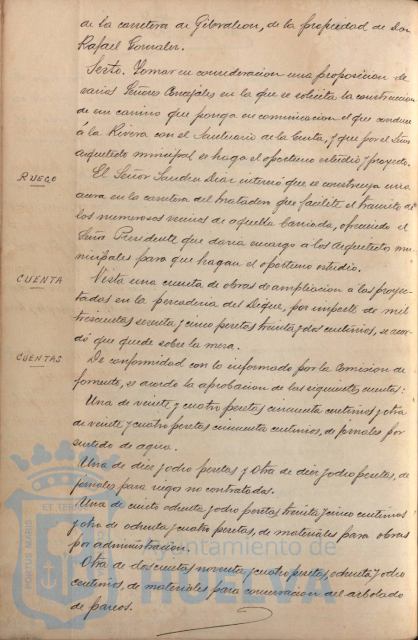 de la carretera de Gibraleon, de la propiedad de Don
Rafael Gonzalez.
Sexto. Tomar en consideracion una proposicion de
varios Señores Concejales en la que se solicita la construccion
de un camino que ponga en comunicacion el que conduce
á la Rivera con el Santuario de la Cinta, y que por el Señor
Arquitecto municipal se haga el oportuno estudio y proyecto.
RUEGO
El Señor Sanchez Diaz interesó que se construya una
acera en la carretera del matadero que facilite el transito de
los numerosos vecinos de aquella barriada, ofreciendo el
Señor Presidente que daria encargo a los Arquitectos mu-
nicipales para que hagan el oportuno estudio.
CUENTA
Vista una cuenta de obras de ampliacion a las proyec-
tadas en la pescaderia del Dique, por importe de mil
trescientas sesenta y cinco pesetas treinta y dos centimos, se acor-
dó que quede sobre la mesa.
CUENTAS
De conformidad con lo informado por la Comision de
fomento, se acordo la aprobacion de las siguientes cuentas:
Una de veinte y cuatro pesetas cincuenta centimos y otra
de veinte y cuatro pesetas cincuenta centimos, de jornales por
surtido de agua.
Una de diez y ocho pesetas y otra de diez y ocho pesetas, de
jornales para riegos no contratados.
Una de ciento ochenta y ocho pesetas treinta y cinco centimos
y otra de ochenta y cuatro pesetas, de materiales para obras
por administracion.
Otra de doscientas noventa y cuatro pesetas, ochenta y ocho
centimos, de materiales para conservacion del arbolado
de paseos.
PORTUS MARIS ET TERRAE
Ayuntamiento de
HUELVA